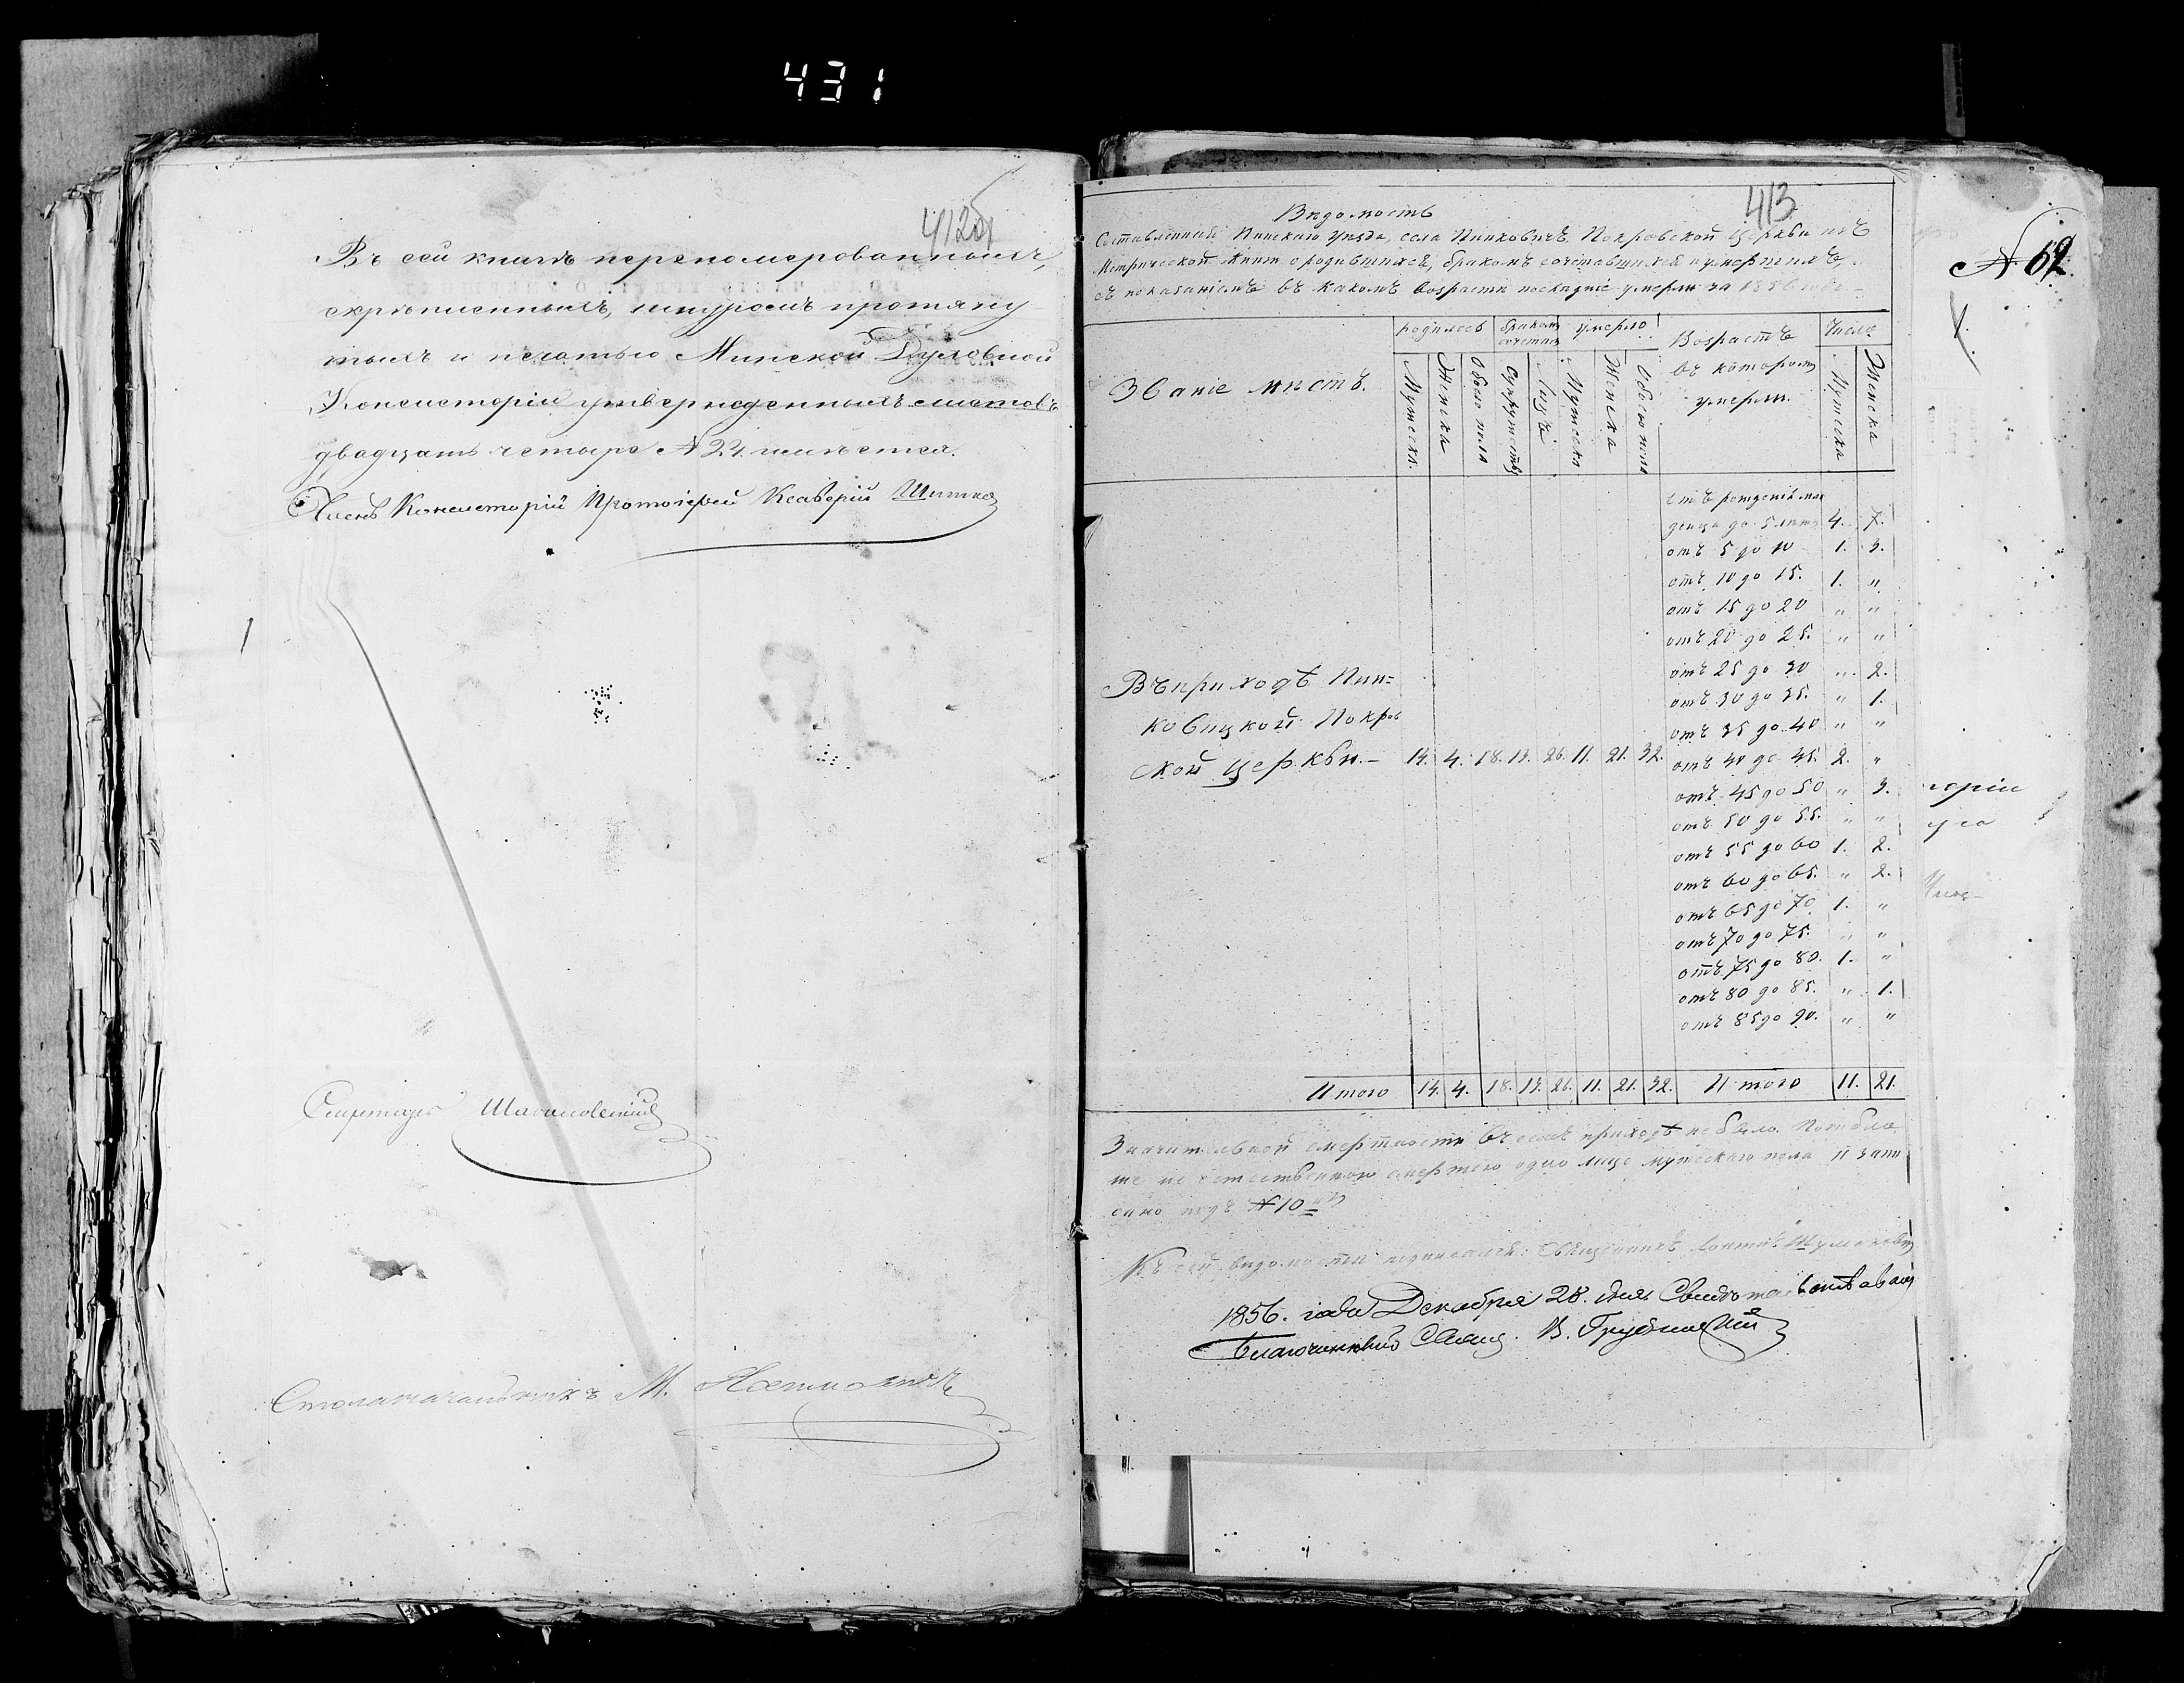 431
412об
Въ сей книгѣ перенумерованныхъ,
скрѣпленныхъ, шнуромъ протяну
тыхъ и печатью Минской Духовной
Консисторіи утвержденныхъ листовъ
двадцать четыре № 24 имѣется.
Членъ Консисторіи Протоіерей Ксаверій
Секретарь
Столоначальникъ М.
413
Вѣдомость
Составленная Пинскаго уѣзда, села Пинковичъ, Покровской Церкви изъ
Метрической Книги о родившихся, бракомъ сочетавшихся и умершихъ,
съ показаніемъ въ какомъ возрастѣ послѣдніе умерли за 1856 годъ
Званіе мѣстъ.
родилось
бракомъ сочетал
умерло
Возрастъ въ которомъ умерли.
Число
Мужеска.
Женска
Обоего пола
Супружествъ
Лицъ
Мужеска
Женска
Обоего пола
Мужеска
Женска
отъ рожденія мла
денца до 5 лѣтъ 4. 7.
отъ 5 до 10 1. 3.
отъ 10 до 15. 1. "
отъ 15 до 20 " "
отъ 20 до 25. " "
отъ 25 до 30 " 2.
отъ 30 до 35. " 1.
отъ 35 до 40 " "
отъ 40 до 45. 2. "
отъ 45 до 50 " 3.
отъ 50 до 55. " "
отъ 55 до 60 1. 2.
отъ 60 до 65. " 2.
отъ 65 до 70 1. "
отъ 70 до 75. " "
отъ 75 до 80. 1. "
отъ 80 до 85. " 1.
отъ 85 до 90. " "
Въ приходѣ Пин=
ковицкой Покров
ской церкви.– 14. 4. 18. 13. 26. 11. 21. 32.
Итого 14. 4. 18. 13. 26. 11. 21. 32. Итого 11. 21.
Значительной смертности въ семъ приходѣ не было. Погибло
же не естественною смертію одно лице мужескаго пола и запи
сано подъ № 10
Къ сей вѣдомости подписался: Священникъ
1856. года Декабря 28. дня Свидѣтельствовалъ
Благочинный Свящ. В.
№ 62.